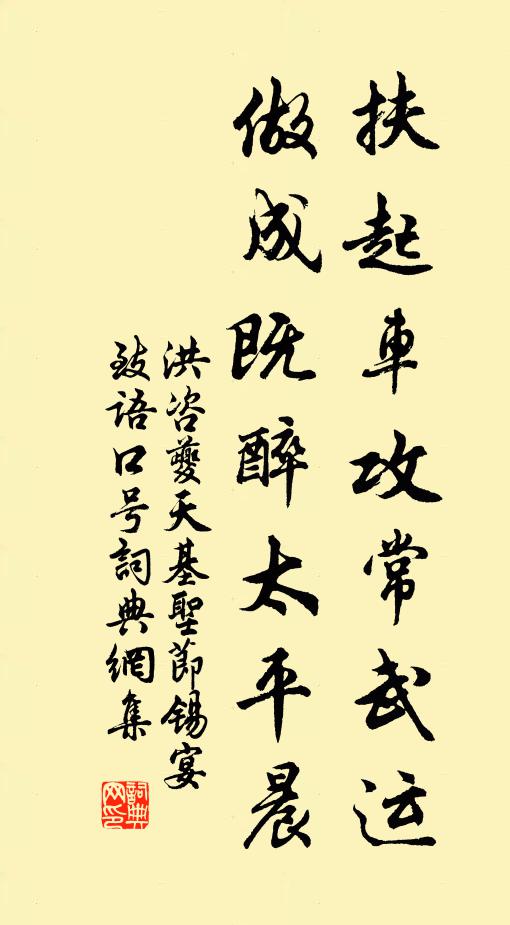 扶起車攻常武运
做成既醉太平晨
洪咨夔天基聖節錫宴
致語口号詞典網集
詞典网印